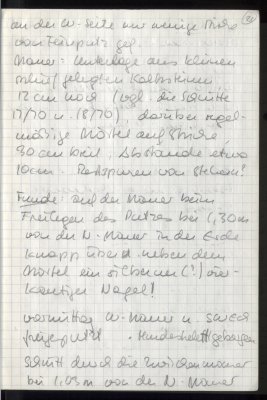 an der W-Seite nur wenige
vom Feinputz
Mauer: Unterlage aus kleinen
gelegten Kalksteinen
12 cm hoch (vgl. die Schnitte
17/70 u. 18/70), darüber regel-
mäßige Mörtelaufstriche,
90 cm breit, Abstände etwa
10 cm. Restspuren von Steinen?
Funde: auf der Mauer beim
Freilegen des Putzes bei 1,30 m
von der N-Mauer in der Erde
knapp über d. neben dem
Mörtel ein eiserner (?) vier-
kantiger Nagel!
vormittag W-Mauer u.
Schnitt durch die Zwischenmauer
bei 1,05 m von der N-Mauer